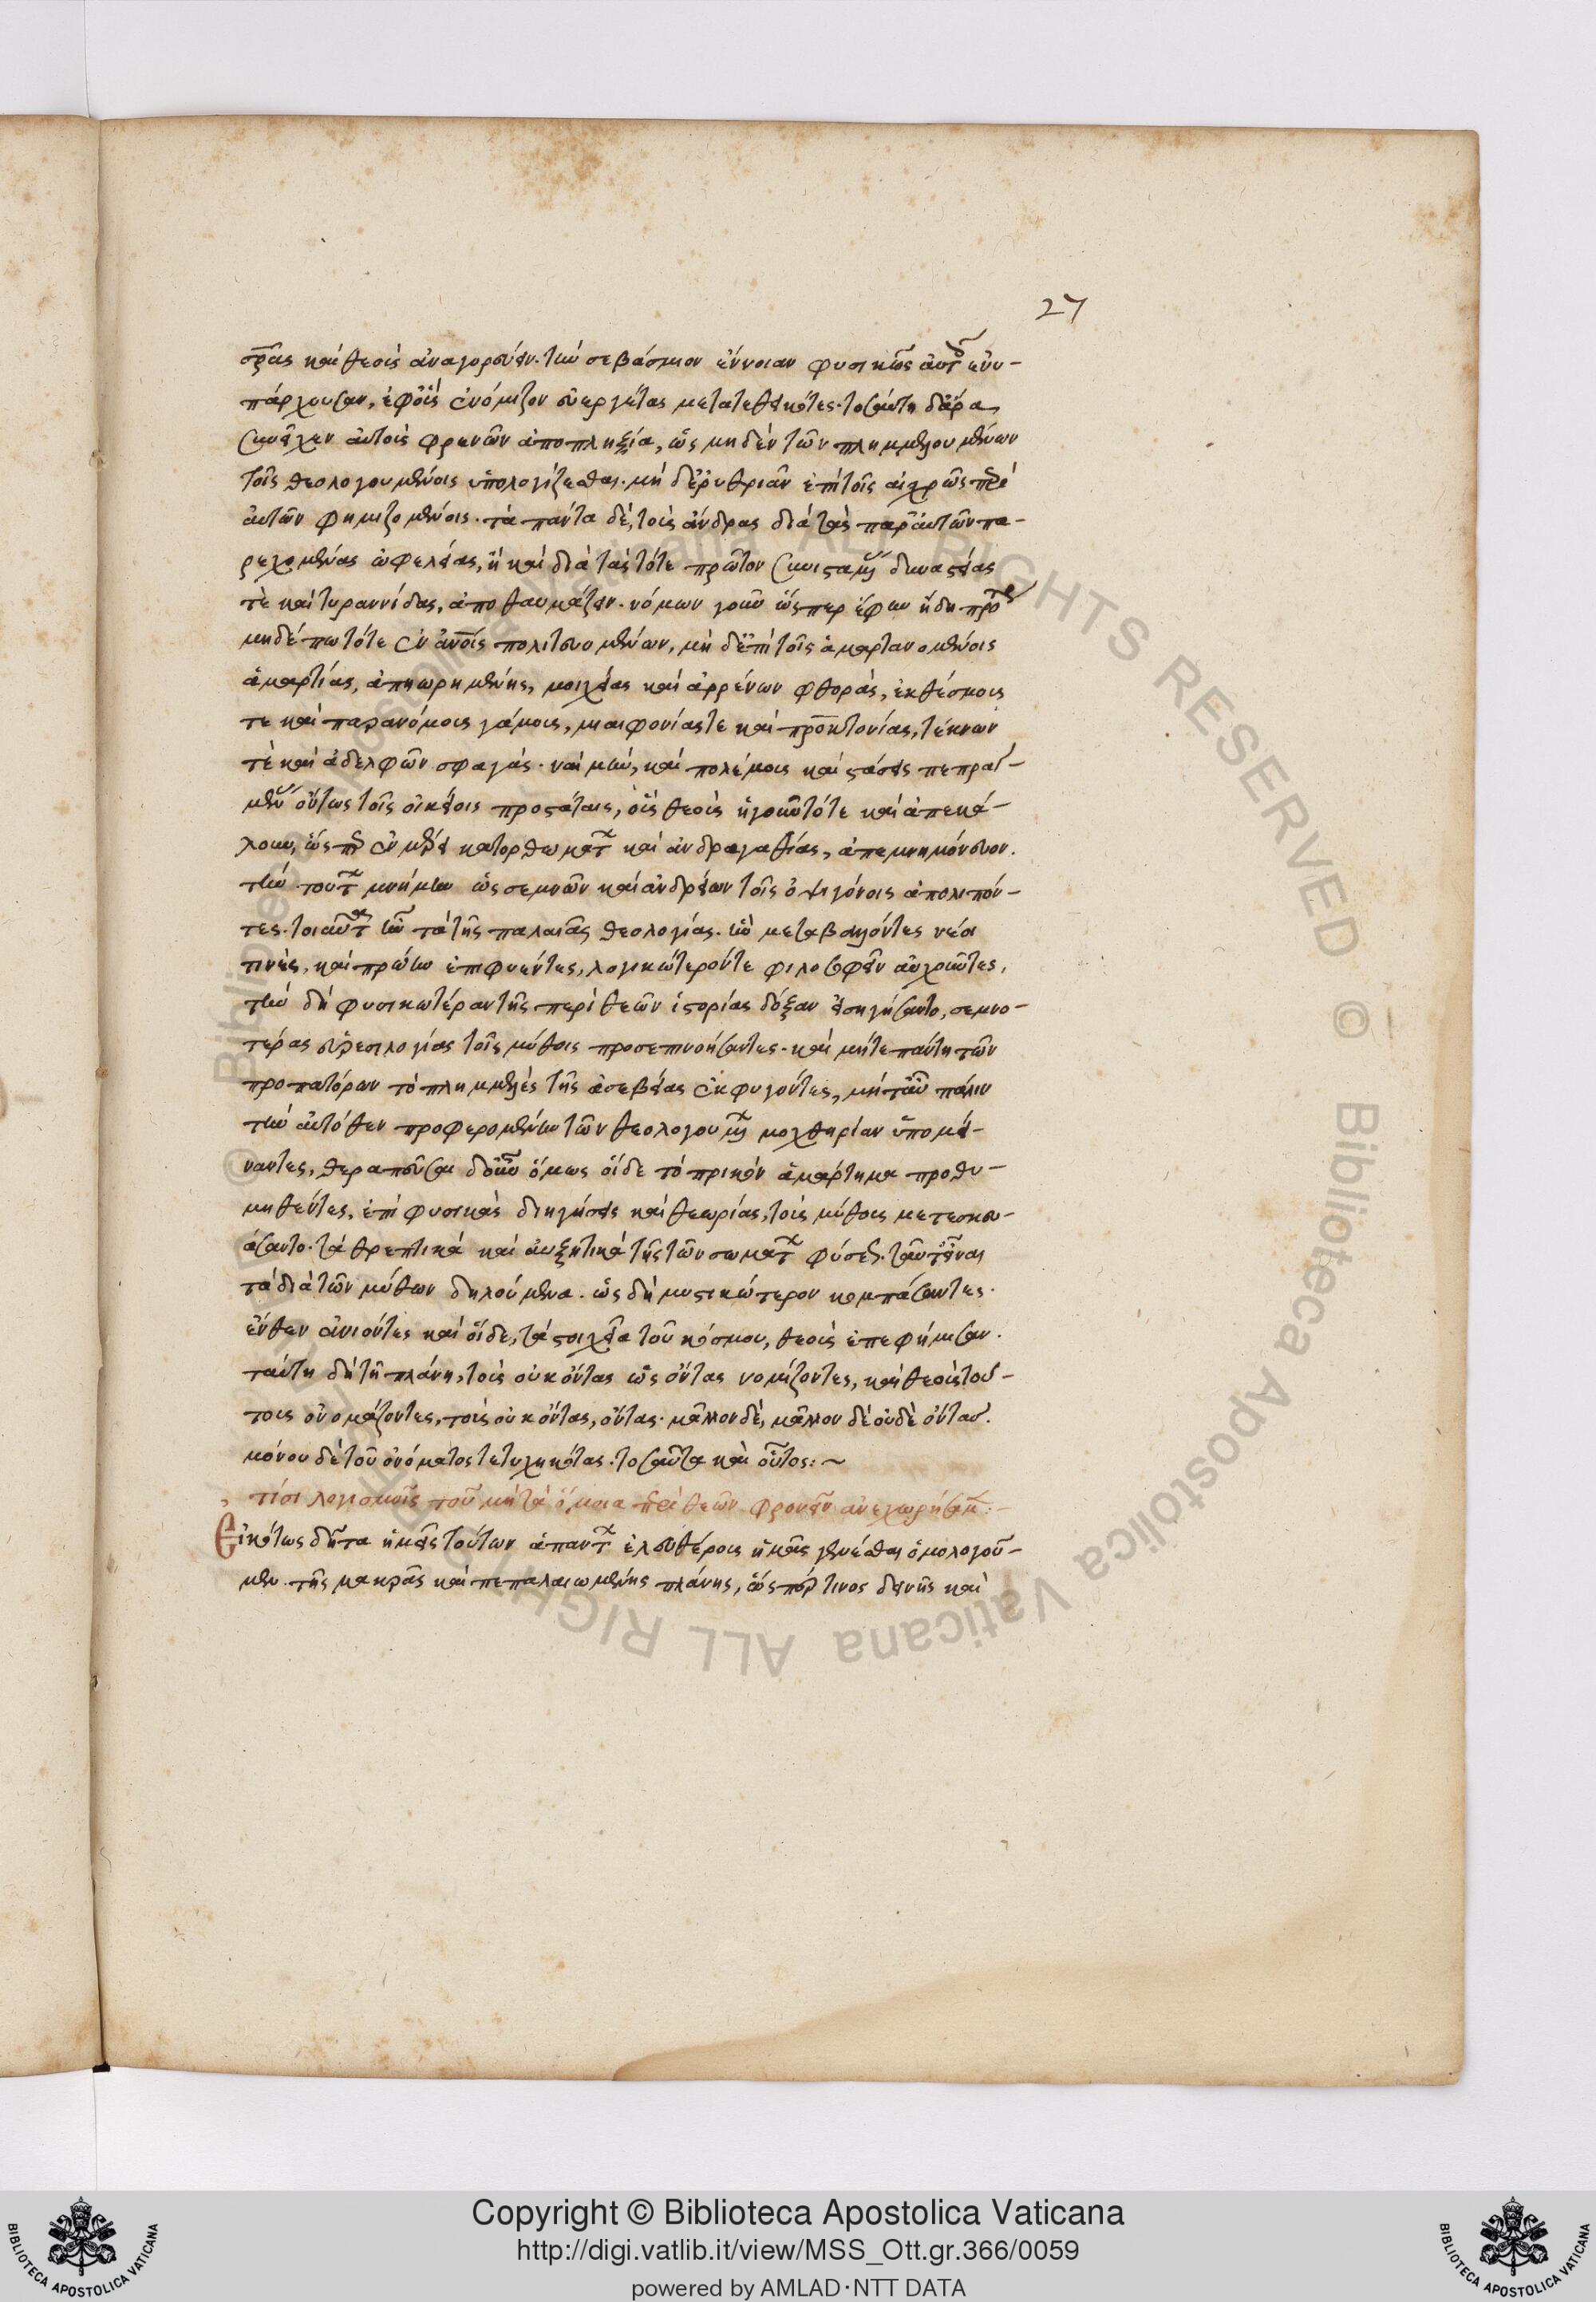 27
σρ̅ας καὶ θεοὺς ἀναγορεύειν. τὴν σεβάσμιον ἔννοιαν φυσικῶς αὐτοῖς ἐνυ-
πάρχουσαν, ἐφ' οἷς ἐνόμιζον εὐεργέτας μετατεθεικότες. τοσαύτη δ' ἄρα
συνεῖχεν αὐτοὺς φρενῶν ἀποπληξία, ὡς μηδὲν τῶν πλημμελουμένων
τοῖς θεολογουμένοις ὑπολογίζεσθαι. μὴ δ' ἐρυθριᾶν ἐπὶ τοῖς αἰσχρῶς περὶ
αὐτῶν φημιζομένοις. τὰ πάντα δὲ, τοὺς ἄνδρας διὰ τὰς παρ' αὐτῶν πα-
ρεχομένας ὠφελείας, ἢ καὶ διὰ τὰς τότε πρῶτον συνισταμένας δυναστείας
τὲ καὶ τυραννίδας, ἀποθαυμάζειν. νόμων γοῦν ὥσπερ ἔφην ἤδη πρότερον
μηδέπω τότε ἐν ἀνοις πολιτευομένων, μὴ δ' ἐπὶ τοῖς ἁμαρτανομένοις
ἁμαρτίας, ἀπῃωρημένης, μοιχείας καὶ ἀρρένων φθορὰς, ἐκθέσμους
τε καὶ παρανόμους γάμους, μιαιφονίας τε καὶ πρ̅οκτονίας, τέκνων
τὲ καὶ ἀδελφῶν σφαγὰς. ναὶ μὴν, καὶ πολέμους καὶ στάσεις πεπραγ-
μένας ὄντως τοῖς οἰκείοις προστάταις, οὓς θεοὺς ἡγοῦντό τε καὶ ἀπεκά-
λουν, ὥσπερ ἐν μέρει κατορθωμάτων καὶ ἀνδραγαθίας, ἀπεμνημόνευον.
τὴν τούτων μνήμην ὡς σεμνῶν καὶ ἀνδρείων τοῖς ὀψιγόνοις ἀπολιπόν-
τες. τοιαῦτα ἦν τὰ τῆς παλαιᾶς θεολογίας. ἣν μεταβαλόντες νέοι
τινὲς, καὶ πρώην ἐπιφυέντες, λογικώτερόν τε φιλοσοφεῖν αὐχοῦντες,
τὴν δὴ φυσικωτέραν τῆς περὶ θεῶν ἱστορίας δόξαν εἰσηγήσαντο, σεμνο-
τέρας εὑρεσιλογίας τοῖς μύθοις προσεπινοήσαντες. καὶ μήτε πάντη τῶν
προπατόρων τὸ πλημμελὲς τῆς ἀσεβείας ἐκφυγόντες, μήτ' αὖ πάλιν
τὴν αὐτόθεν προφερομένην τῶν θεολογουμένων μοχθηρίαν ὑπομεί-
ναντες, θεραπεῦσαι δ' οὖν ὅμως οἵδε τὸ πρικὸν ἁμάρτημα προθυ-
μηθέντες, ἐπὶ φυσικὰς διηγήσεις καὶ θεωρίας, τοὺς μύθους μετεσκευ-
άσαντο. τὰ θρεπτικὰ καὶ αὐξητικὰ τῆς τῶν σωμάτων φύσεως. ταῦτ' εἶναι
τὰ διὰ τῶν μύθων δηλούμενα. ὡς δὴ μυστικώτερον κομπάσαντες.
ἔνθεν ἀνιόντες καὶ οἵδε, τὰ στοιχεῖα τοῦ κόσμου, θεοὺς ἐπεφήμισαν.
ταύτῃ δὴ τῇ πλάνῃ, τοὺς οὐκ ὄντας ὡς ὄντας νομίζοντες, καὶ θεοὺς τού-
τους ὀνομάζοντες, τοὺς οὐκ ὄντας, ὄντας. μᾶλλον δὲ, μᾶλλον δὲ οὐδὲ ὄντας.
μόνου δὲ τοῦ ὀνόματος τετυχηκότας. τοσαῦτα καὶ οὗτος: ~
τίσι λογισμοῖς τοῦ μὴ τὰ ὅμοια περὶ θεῶν φρονεῖν ἀνεχωρήσαμεν:-
Εἰκότως δῆτα ἡμεῖς τούτων ἁπάντων ἐλευθέρους ἡμᾶς γενέσθαι ὁμολογοῦ-
μεν. τῆς μακρᾶς καὶ πεπαλαιωμένης πλάνης, ὥσπερ τινος δεινῆς καὶ
Copyright © Biblioteca Apostolica Vaticana
http://digi.vatlib.it/view/MSS_Ott.gr.366/0059
powered by AMLAD·NTT DATA